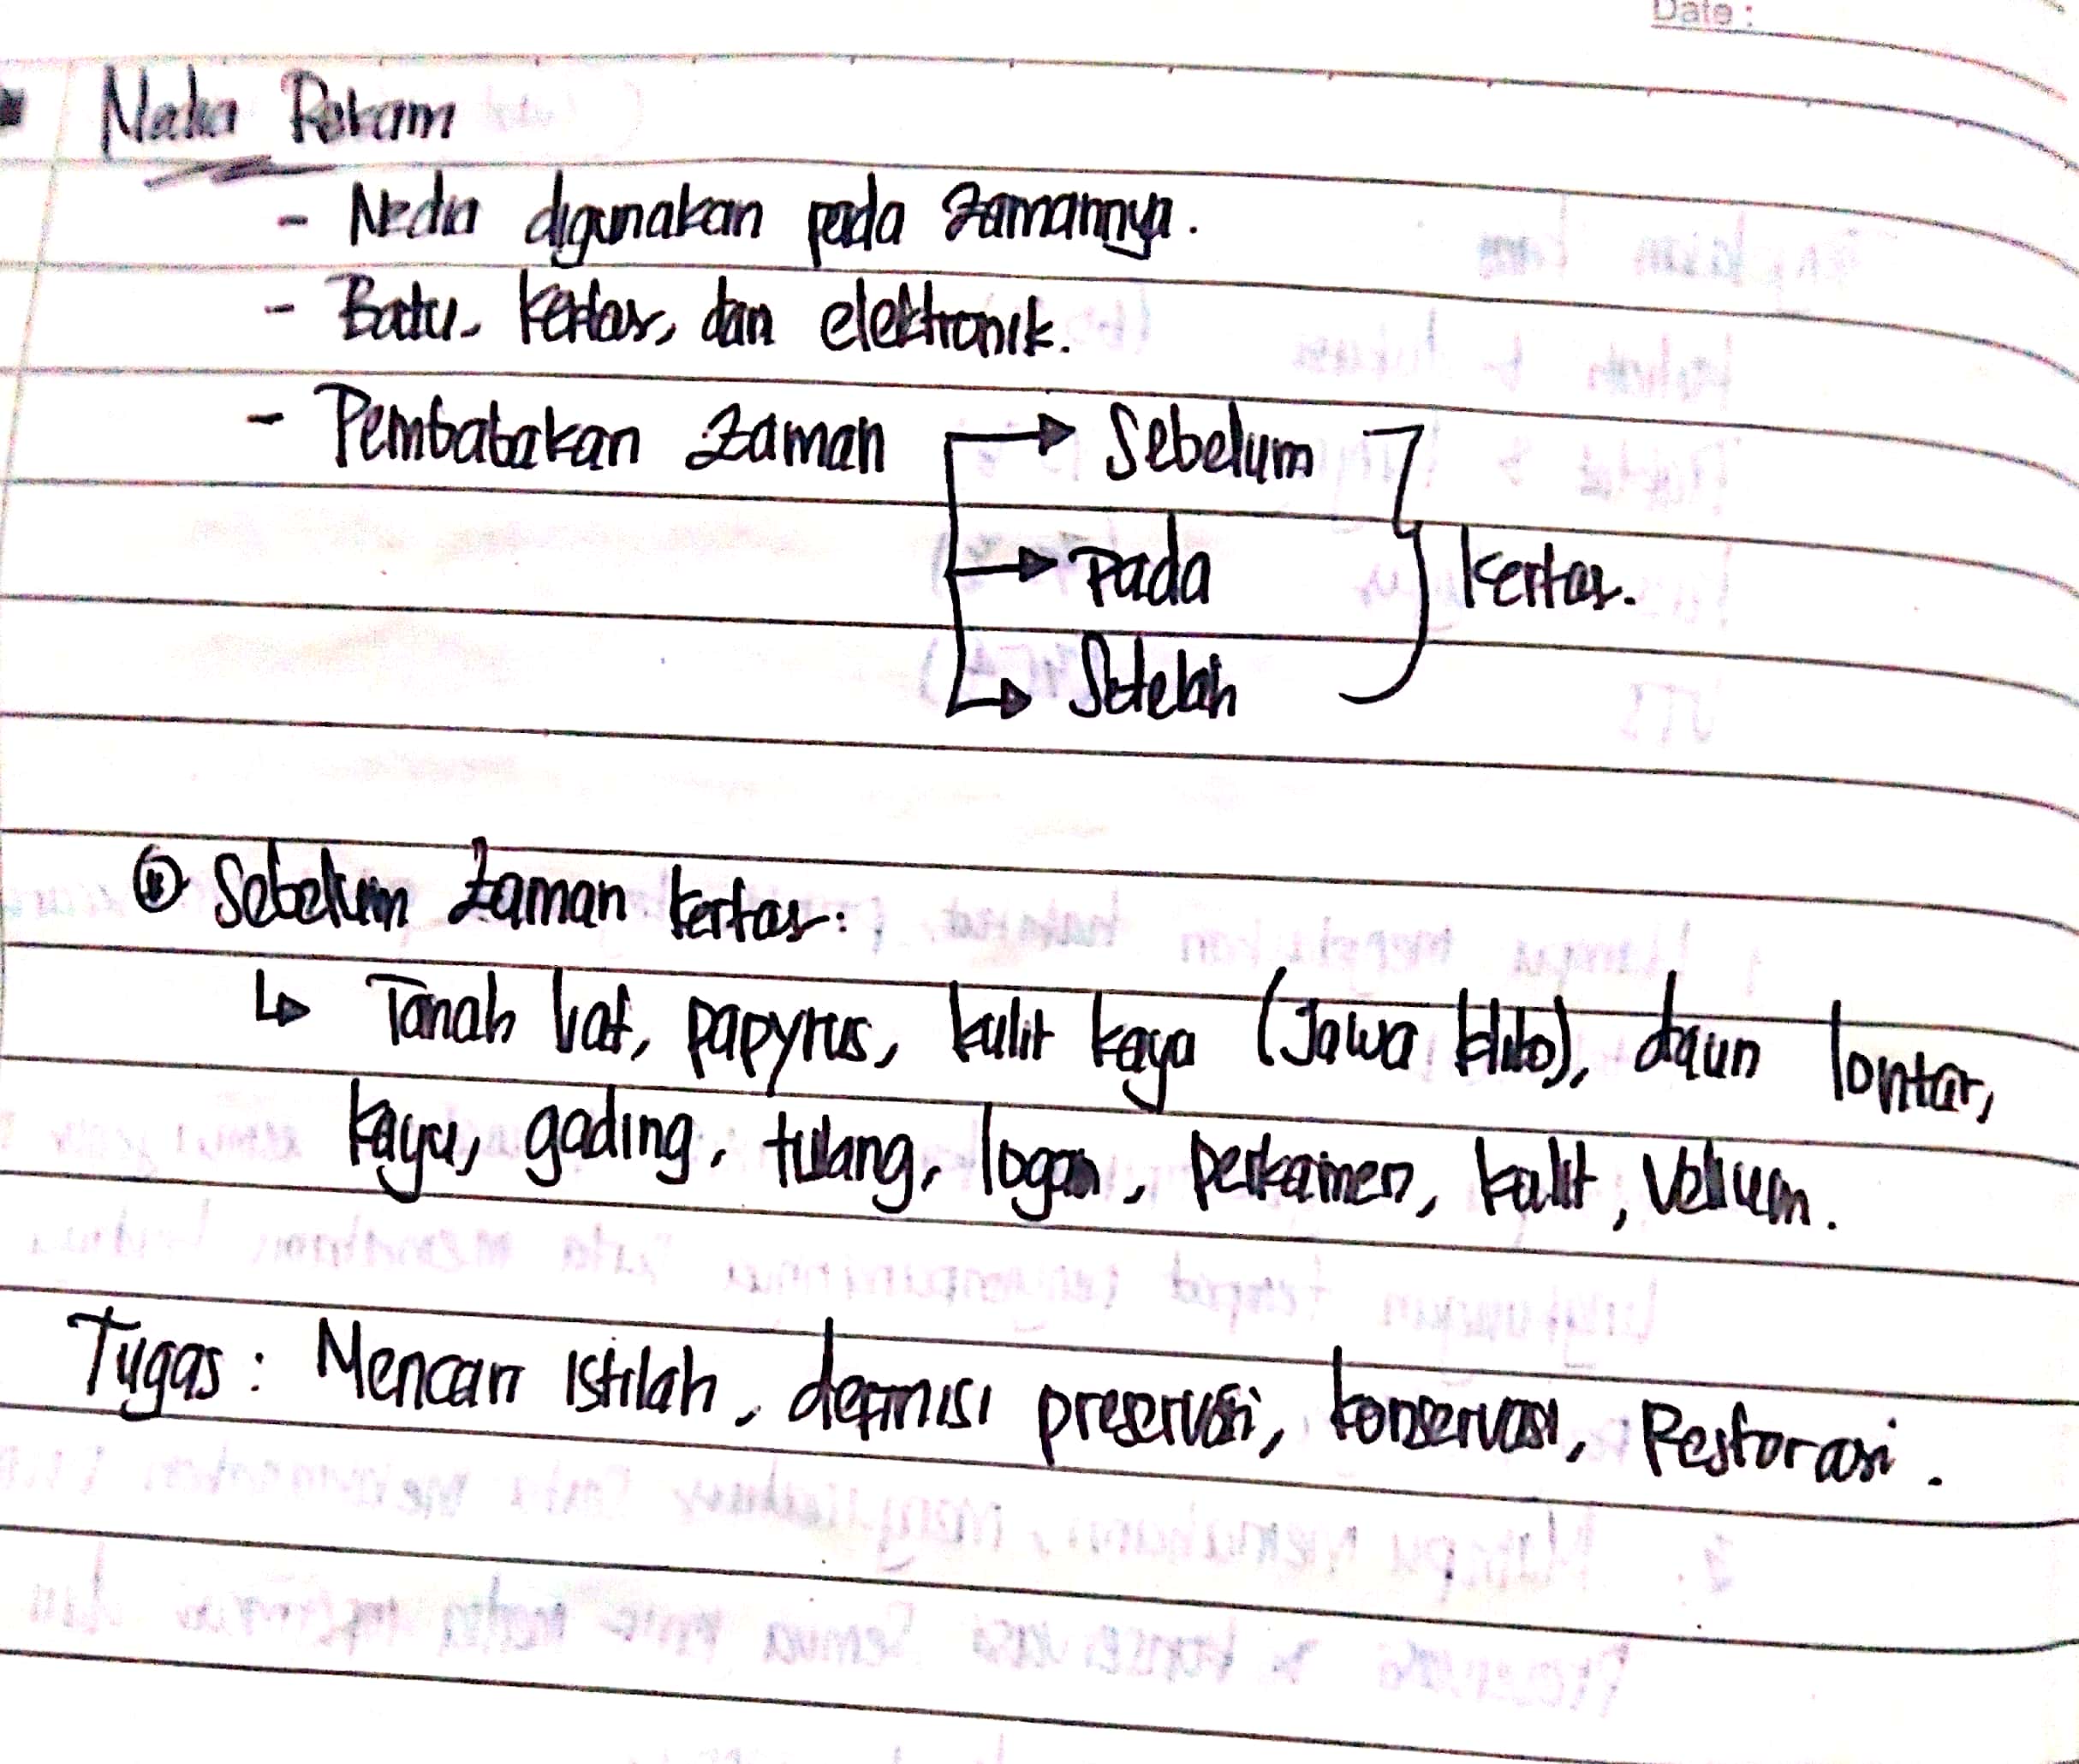 Date :
Media Rekam
- Media digunakan pada zamannya.
- Batu, kertas, dan elektronik.
- Pembabakan zaman → Sebelum
→ Pada
Kertas.
→ Setelah
Sebelum zaman kertas:
↳ Tanah liat, papyrus, kulit kayu (Jawa kuno), daun lontar,
kayu, gading, tulang, logam, perkamen, kulit, Vellum.
Tugas : Mencari istilah, definisi preservasi, konservasi, Restorasi.